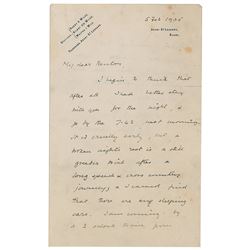 5 Feb 1905
My dear Newton
I begin to think that
after all I had better stay
with you for the night, &
go by the 7.43 next morning.
It is cruelly early, but a
broken night's rest is a still
greater trial after a
long speech & cross country
journey, & I cannot find
that there are any sleeping
cars. I am coming by
a 3 o'clock train from